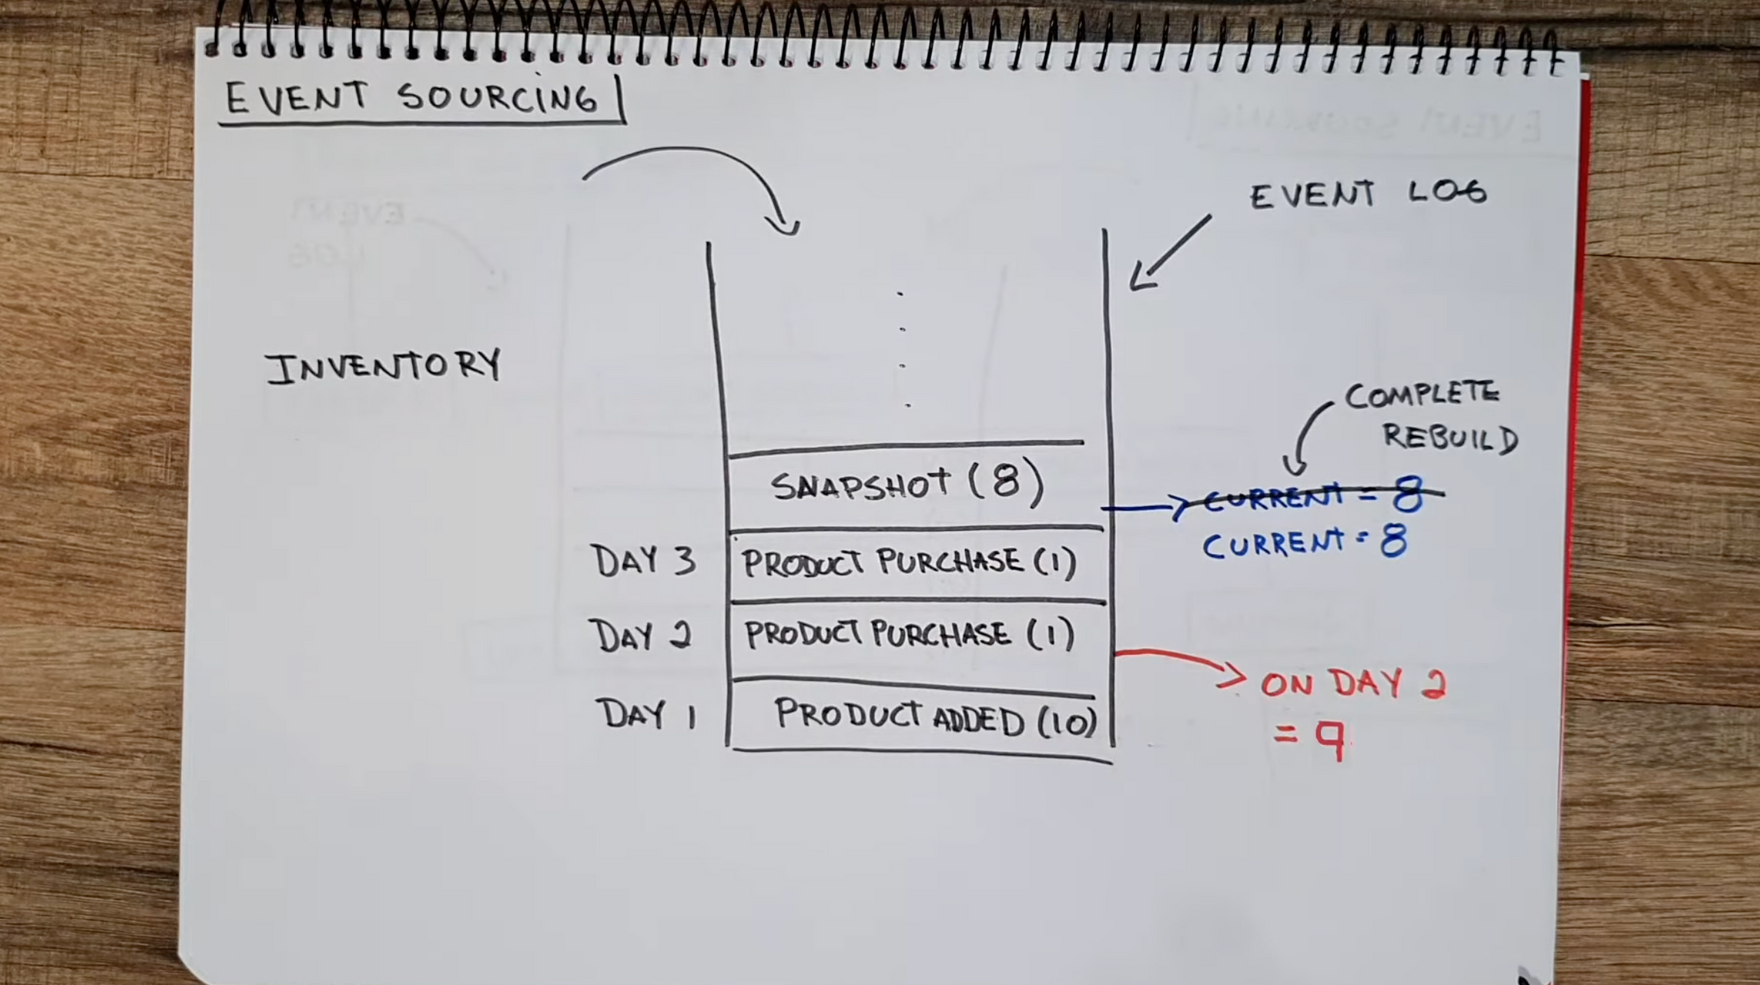 EVENT SOURCING
EVENT LOG
INVENTORY
COMPLETE
REBUILD
SNAPSHOT (8)
CURRENT = 8
CURRENT = 8
DAY 3
PRODUCT PURCHASE (1)
DAY 2
PRODUCT PURCHASE (1)
ON DAY 2
= 9
DAY 1
PRODUCT ADDED (10)